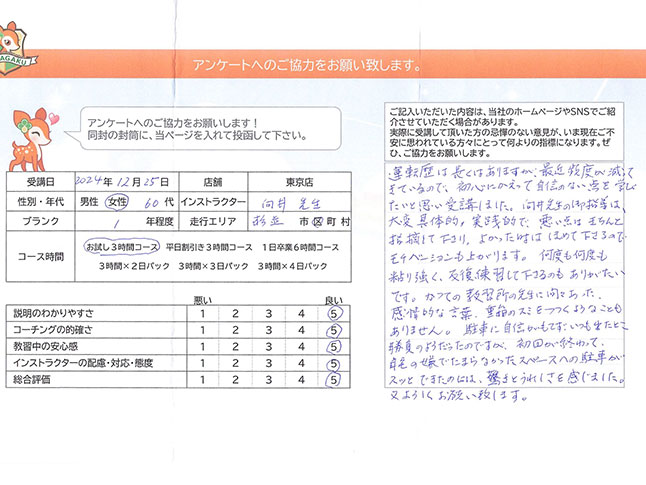 AGAKU
アンケートへのご協力をお願い致します。
アンケートへのご協力をお願いします！
同封の封筒に、当ページを入れて投函して下さい。
受講日 2024年 12月 25日 店舗 東京店
性別・年代 男性 女性 60代 インストラクター 向井 先生
ブランク 1 年程度 走行エリア 杉並 市 区 町 村
コース時間 お試し3時間コース 平日割引き3時間コース 1日卒業6時間コース
3時間×2日パック 3時間×3日パック 3時間×4日パック
悪い 良い
説明のわかりやすさ 1 2 3 4 5
コーチングの的確さ 1 2 3 4 5
教習中の安心感 1 2 3 4 5
インストラクターの配慮・対応・態度 1 2 3 4 5
総合評価 1 2 3 4 5
ご記入いただいた内容は、当社のホームページやSNSでご紹
介させていただく場合があります。
実際に受講して頂いた方の忌憚のない意見が、いま現在ご不
安に思われている方々にとって何よりの指標になります。ぜ
ひ、ご協力をお願いします。
運転歴は長くはありますが、最近頻度が減って
きているので、初心にかえって自信のない点を学び
たいと思い受講しました。向井先生の御指導は、
大変具体的、実践的で、悪い点はきちんと
指摘して下さり、よかった時は ほめて下さるので
モチベーションも上がります。何度も何度も
粘り強く、反復練習して下さるのもありがたい
です。かつての教習所の先生に時々あった、
感情的な言葉、重箱のスミをつつくようなことも
ありません。駐車に自信がもてず、いつも出たとこ
勝負のようだったのですが、初回が終わって、
自宅の嫌でたまらなかったスペースへの駐車が
スッとできたのには、驚きとうれしさを感じました。
又よろしくお願い致します。